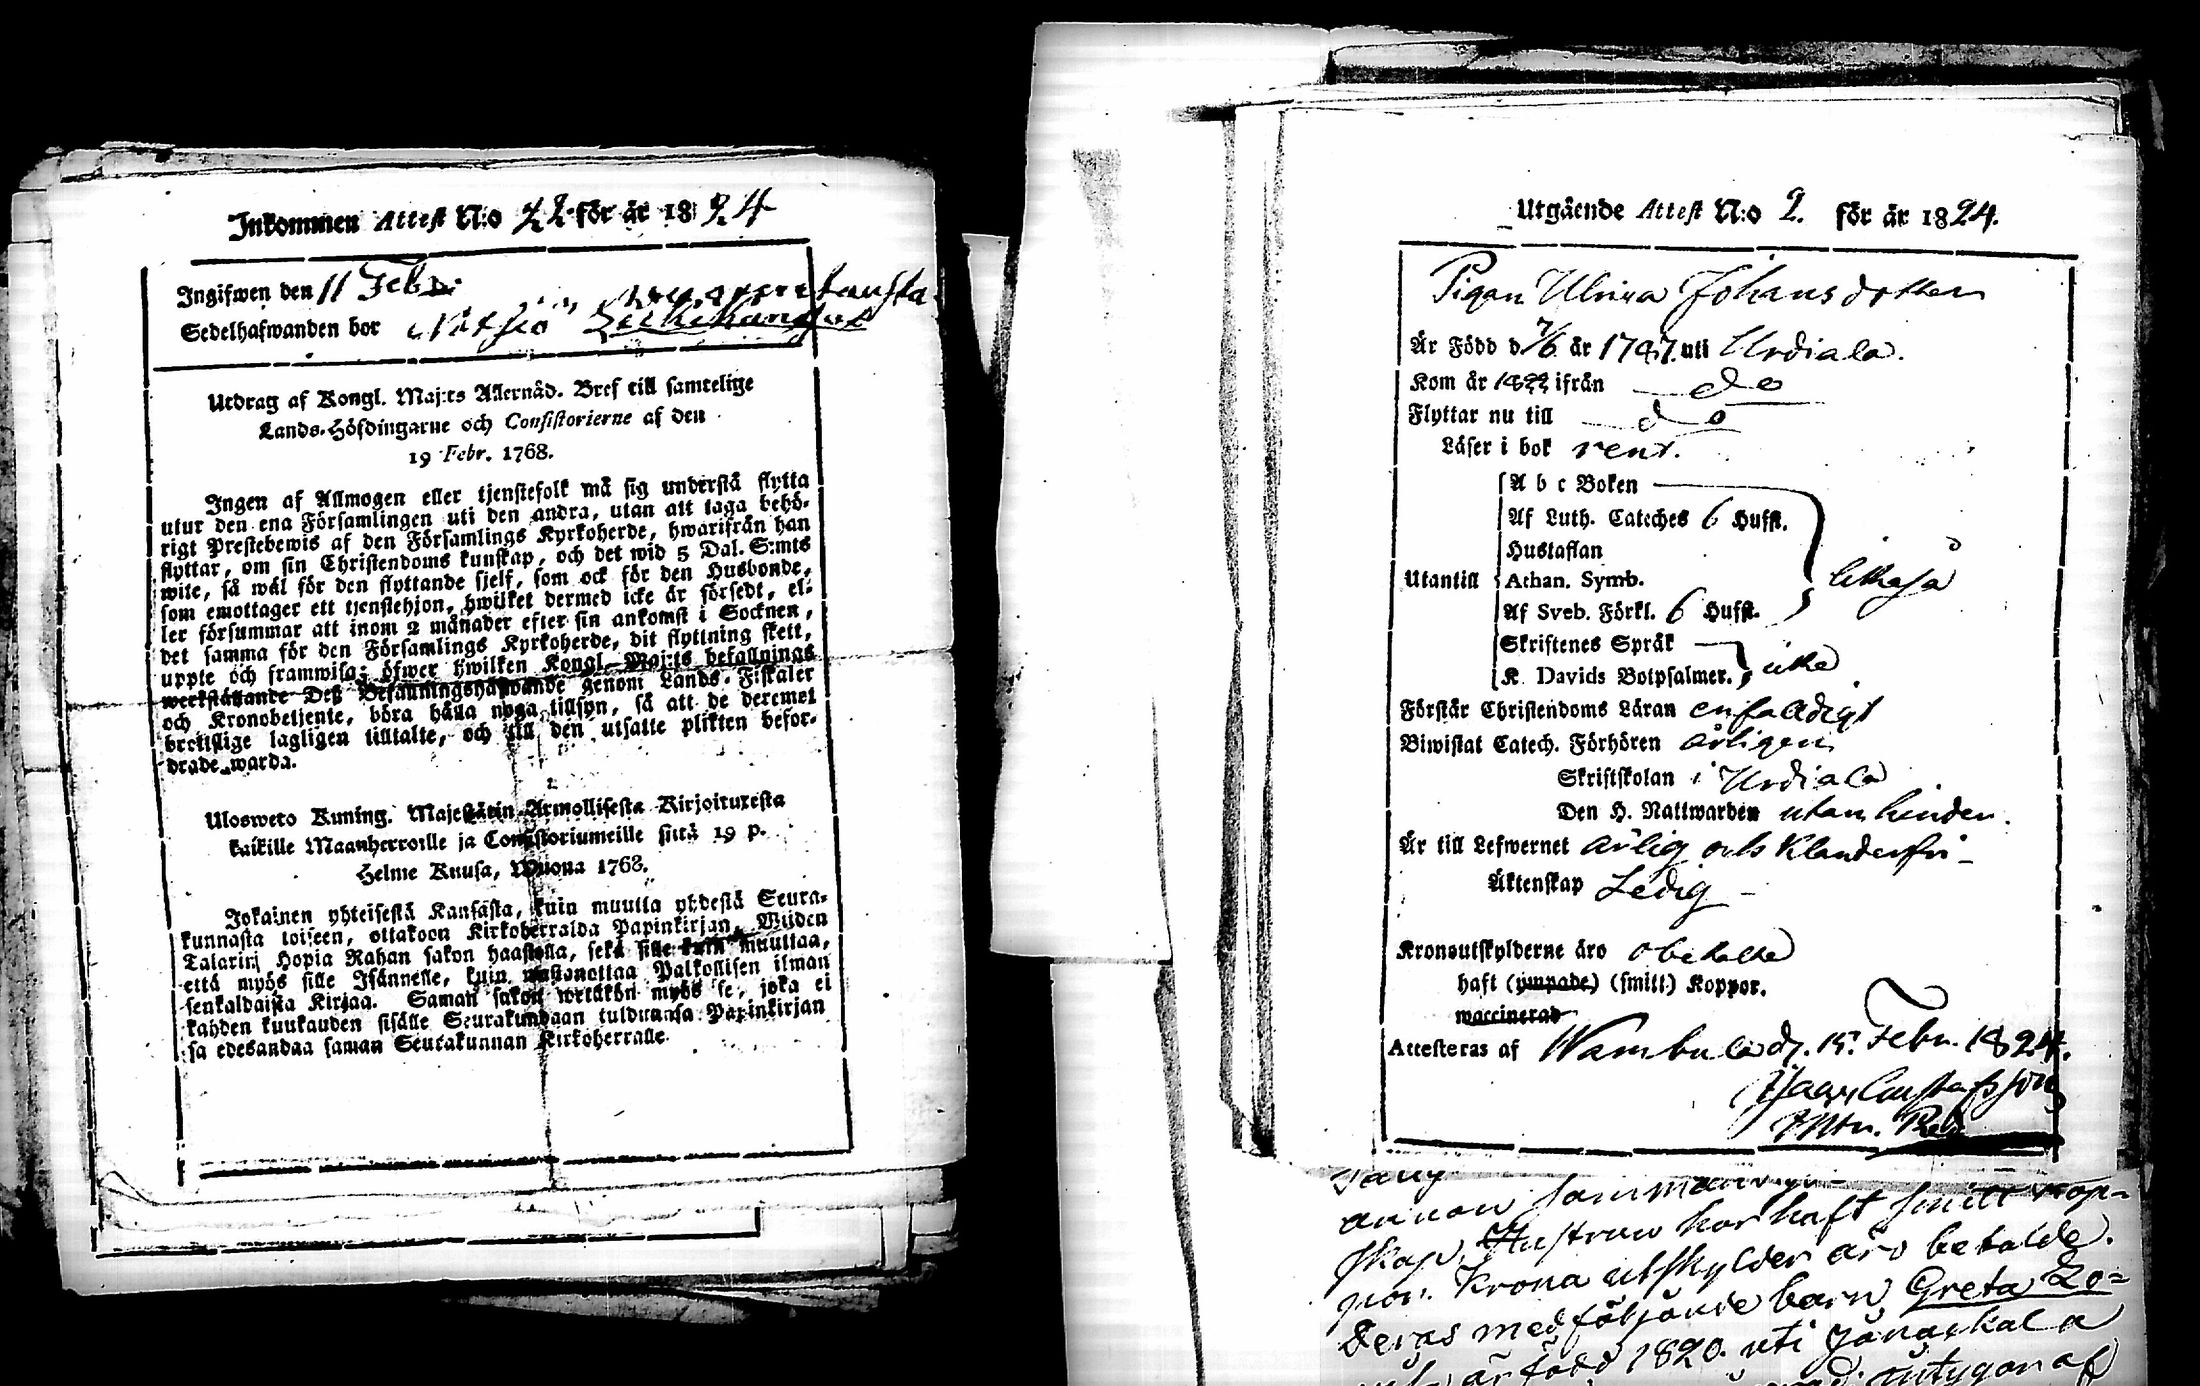 Inkommen Attest N:o 22 för år 1824
Ingifwen den 11 Febr.
Sedelhafwanden bor
Utdrag af Kongl. Maj:ts Allernåd. Bref till samtelige
Lands-Höfdingarne och Consistorierne af den
19 Febr. 1768.
Ingen af Allmogen eller tjenstefolk må sig understå flytta
utur den ena Församlingen uti den andra, utan att taga behö-
rigt Prestebewis af den Församlings Kyrkoherde, hwarifrån han
flyttar, om sin Christendoms kunskap, och det wid 5 Dal. S:mts
wite, så wäl för den flyttande sjelf, som ock för den Husbonde,
som emottager ett tjenstehjon, hwilket dermed icke är försedt, el-
ler försummar att inom 2 månader efter sin ankomst i Socknen,
det samma för den Församlings Kyrkoherde, dit flyttning skett,
uppte och framwisa; öfwer hwilken Kongl. Maj:ts befallnings
werkställande Deß Befallningshafwande genom Lands-Fiskaler
och Kronobetjente, böra hålla noga tillsyn, så att de deremot
brottslige lagligen tilltalte, och till den utsatte plikten befor-
drade warda.
Ulosweto Kuning. Majestätin Armollisesta Kirjoituxesta
kaikille Maanherroille ja Consistoriumeille siitä 19 p.
Helme Kuusa, Wuona 1768.
Jokainen yhteisestä Kansasta, kuin muutta yhdestä Seura-
kunnasta toiseen, ottakoon Kirkoherralda Papinkirjan, Wiiden
Talarin Hopia Rahan sakon haastolla, sekä sille kuin muuttaa,
että myös sille Isännelle, kuin wastanottaa Palkollisen ilman
senkaldaista Kirjaa. Saman sakon wetäkön myös se, joka ei
kahden kuukauden sisälle Seurakundaan tulduansa Papinkirjan
sa edesandaa saman Seurakunnan Kirkoherralle.
Utgående Attest N:o 2. för år 1824.
Pigan Ulrica Johansdotter
Är Född d 7/6 år 1787. uti Urdiala.
Kom år 1822 ifrån do
Flyttar nu till do
Läser i bok rent.
A b c Boken
Af Luth. Cateches 6 Hufst.
Hustaflan
Utantill Athan. Symb. likaså
Af Sveb. Förkl. 6 Hufst.
Skriftenes Språk
K. Davids Botpsalmer. icke
Förstår Christendoms Läran enfaldigt
Biwistat Catech. Förhören årligen
Skriftskolan i Urdiala
Den H. Nattwarden utan hinder.
Är till Lefwernet ärlig och klanderfri
Äktenskap Ledig
Kronoutskylderne äro obetalte
haft (ympade) (smitt) Koppor.
waccinerad
Attesteras af Wambula d. 15. Febr. 1824.
Gustafsson
annan
skap. Hustrun har haft smitt kop-
por. Krona utskylder äro betalde.
Deras medföljande barn Greta Lo-
är född 1820. uti Janakkala